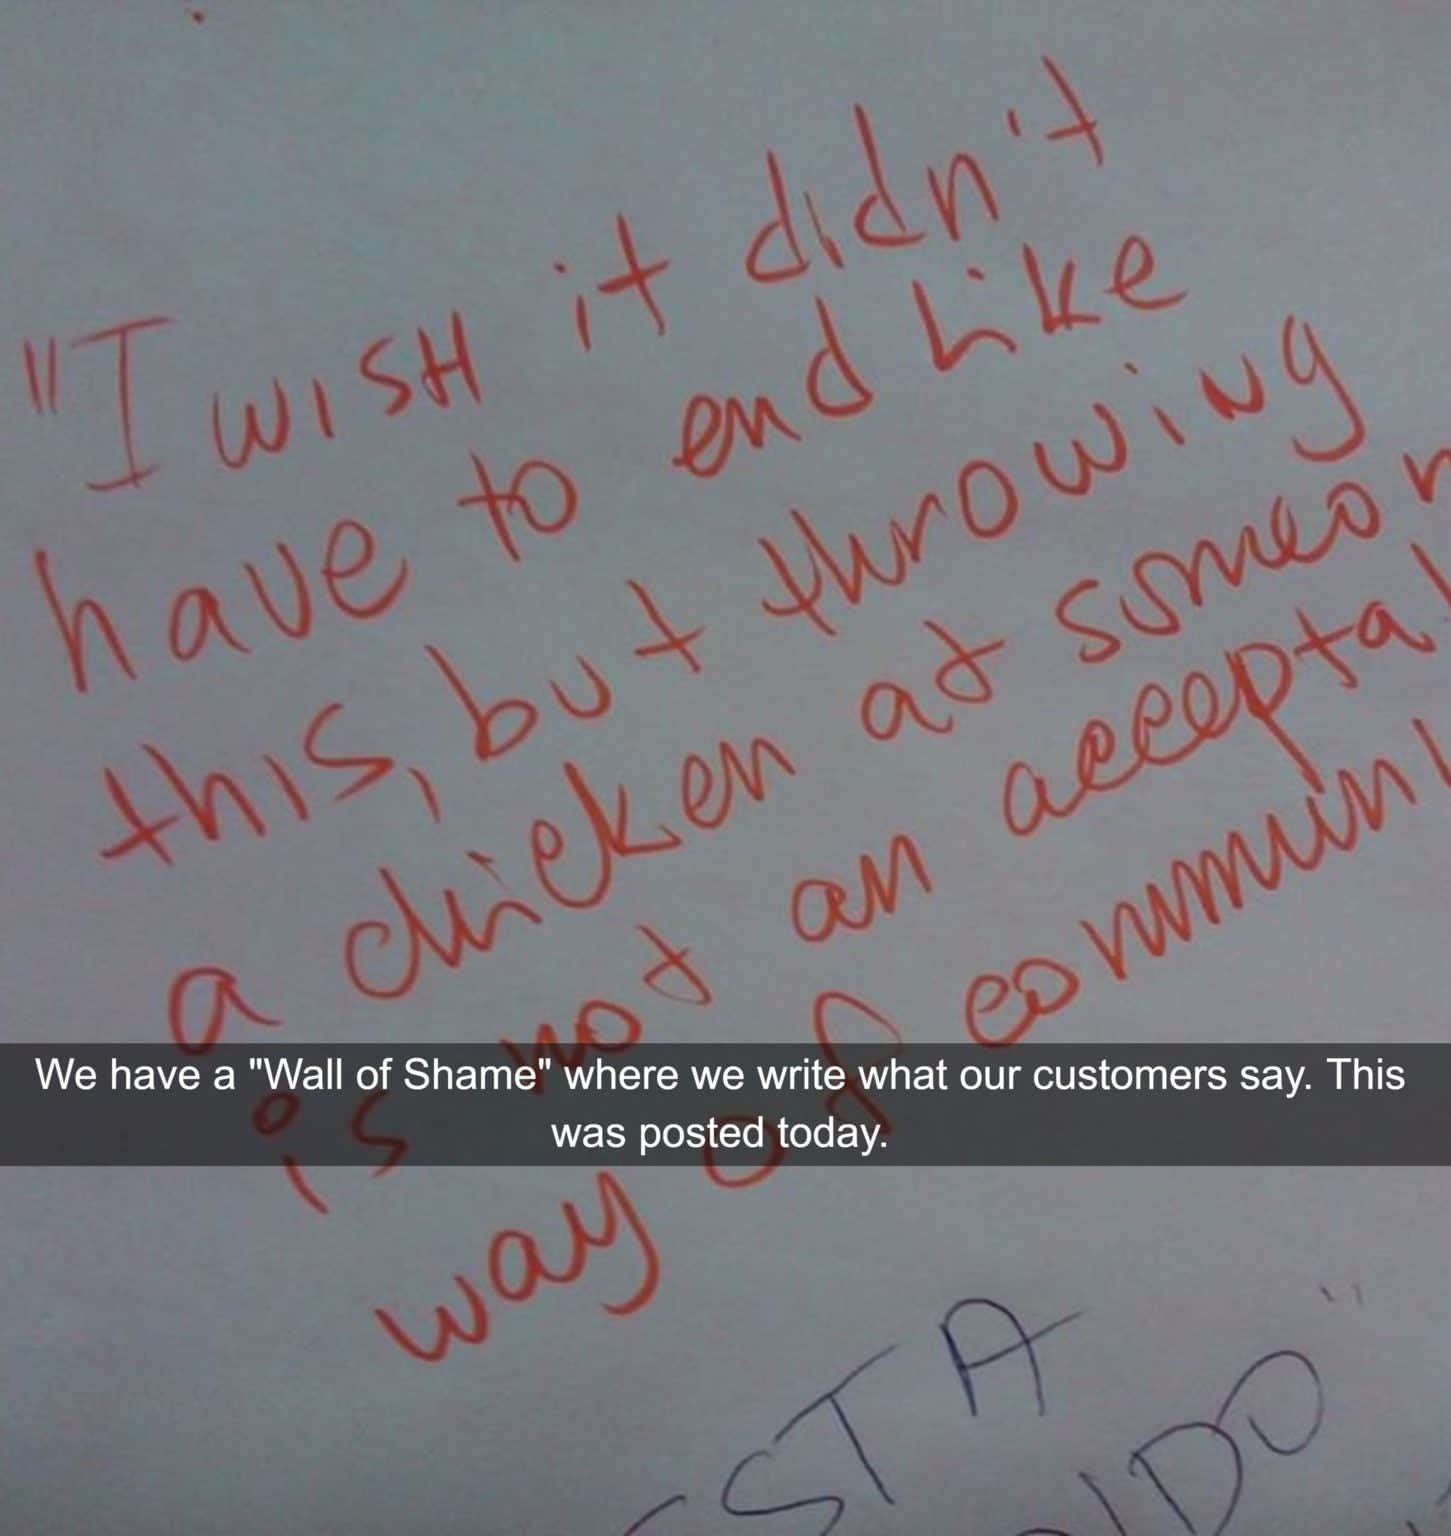 "I WISH it didn't
have to end Like
this, but throwing
a chicken at someon
is not an accepta
way of commun
We have a "Wall of Shame" where we write what our customers say. This
was posted today.
STA
IDO"